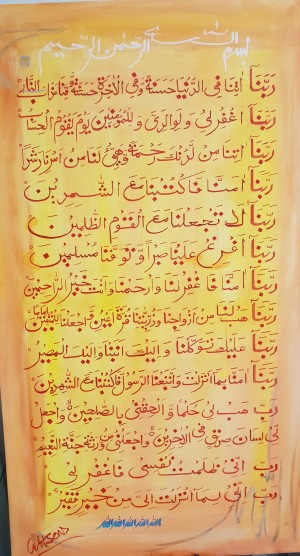 بسم الله الرحمن الرحيم
رَبَّنَا اٰتِنَا فِى الدُّنْيَا حَسَنَةً وَّفِى الْاٰخِرَةِ حَسَنَةً وَّقِنَا عَذَابَ النَّارِ
رَبَّنَا اغْفِرْ لِىْ وَلِوَالِدَىَّ وَلِلْمُؤْمِنِيْنَ يَوْمَ يَقُوْمُ الْحِسَابُ
رَبَّنَا اٰتِنَا مِنْ لَّدُنْكَ رَحْمَةً وَّهَيِّئْ لَنَا مِنْ اَمْرِنَا رَشَدًا
رَبَّنَا اٰمَنَّا فَاكْتُبْنَا مَعَ الشّٰهِدِيْنَ
رَبَّنَا لَا تَجْعَلْنَا مَعَ الْقَوْمِ الظّٰلِمِيْنَ
رَبَّنَا اَفْرِغْ عَلَيْنَا صَبْرًا وَّتَوَفَّنَا مُسْلِمِيْنَ
رَبَّنَا اٰمَنَّا فَاغْفِرْ لَنَا وَارْحَمْنَا وَاَنْتَ خَيْرُ الرّٰحِمِيْنَ
رَبَّنَا هَبْ لَنَا مِنْ اَزْوَاجِنَا وَذُرِّيّٰتِنَا قُرَّةَ اَعْيُنٍ وَّاجْعَلْنَا لِلْمُتَّقِيْنَ اِمَامًا
رَبَّنَا عَلَيْكَ تَوَكَّلْنَا وَاِلَيْكَ اَنَبْنَا وَاِلَيْكَ الْمَصِيْرُ
رَبَّنَا اٰمَنَّا بِمَا اَنْزَلْتَ وَاتَّبَعْنَا الرَّسُوْلَ فَاكْتُبْنَا مَعَ الشّٰهِدِيْنَ
رَبِّ هَبْ لِىْ حُكْمًا وَّاَلْحِقْنِىْ بِالصّٰلِحِيْنَ وَاجْعَلْ
لِّىْ لِسَانَ صِدْقٍ فِى الْاٰخِرِيْنَ وَاجْعَلْنِىْ مِنْ وَّرَثَةِ جَنَّةِ النَّعِيْمِ
رَبِّ اِنِّىْ ظَلَمْتُ نَفْسِىْ فَاغْفِرْ لِىْ
رَبِّ اِنِّىْ لِمَا اَنْزَلْتَ اِلَىَّ مِنْ خَيْرٍ فَقِيْرٌ